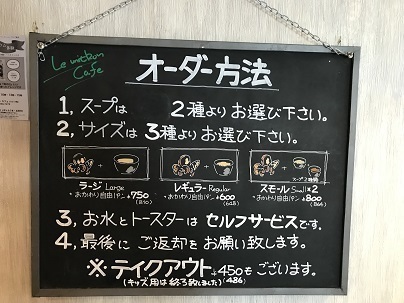 Le mitron
Cafe
オーダー方法
1, スープは 2種よりお選び下さい。
2, サイズは 3種よりお選び下さい。
ラージ Large
・おかわり自由パン +750
(810)
レギュラー Regular
・おかわり自由パン +600
(648)
スープ2種類
スモール Small×2
・おかわり自由パン +800
(864)
3, お水とトースターは セルフサービスです。
4, 最後に ご返却をお願い致します。
※テイクアウト +450もございます。
(キッズ用は終了致しました) (486)